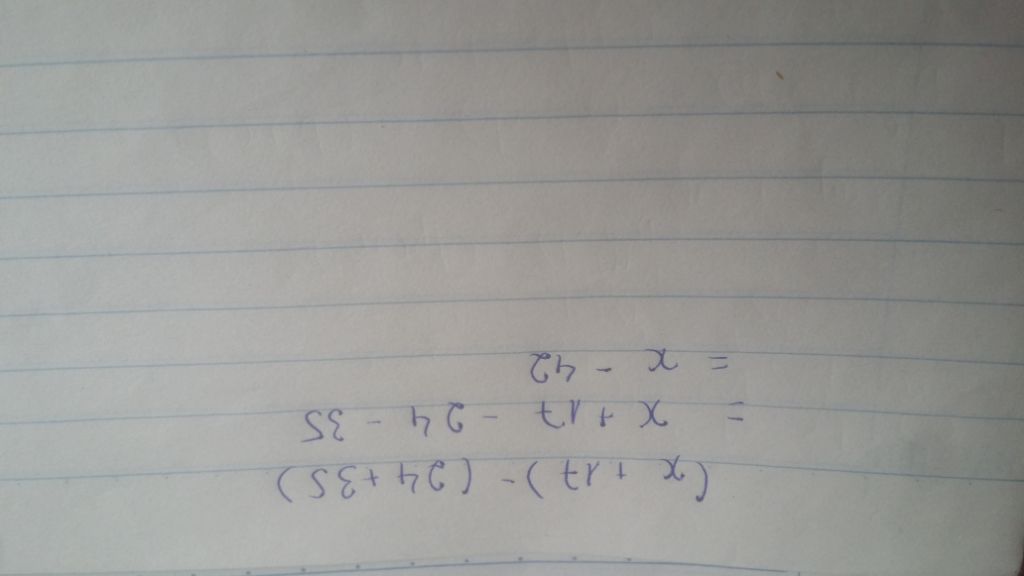 (x + 17) - (24 + 35)
= x + 17 - 24 - 35
= x - 42